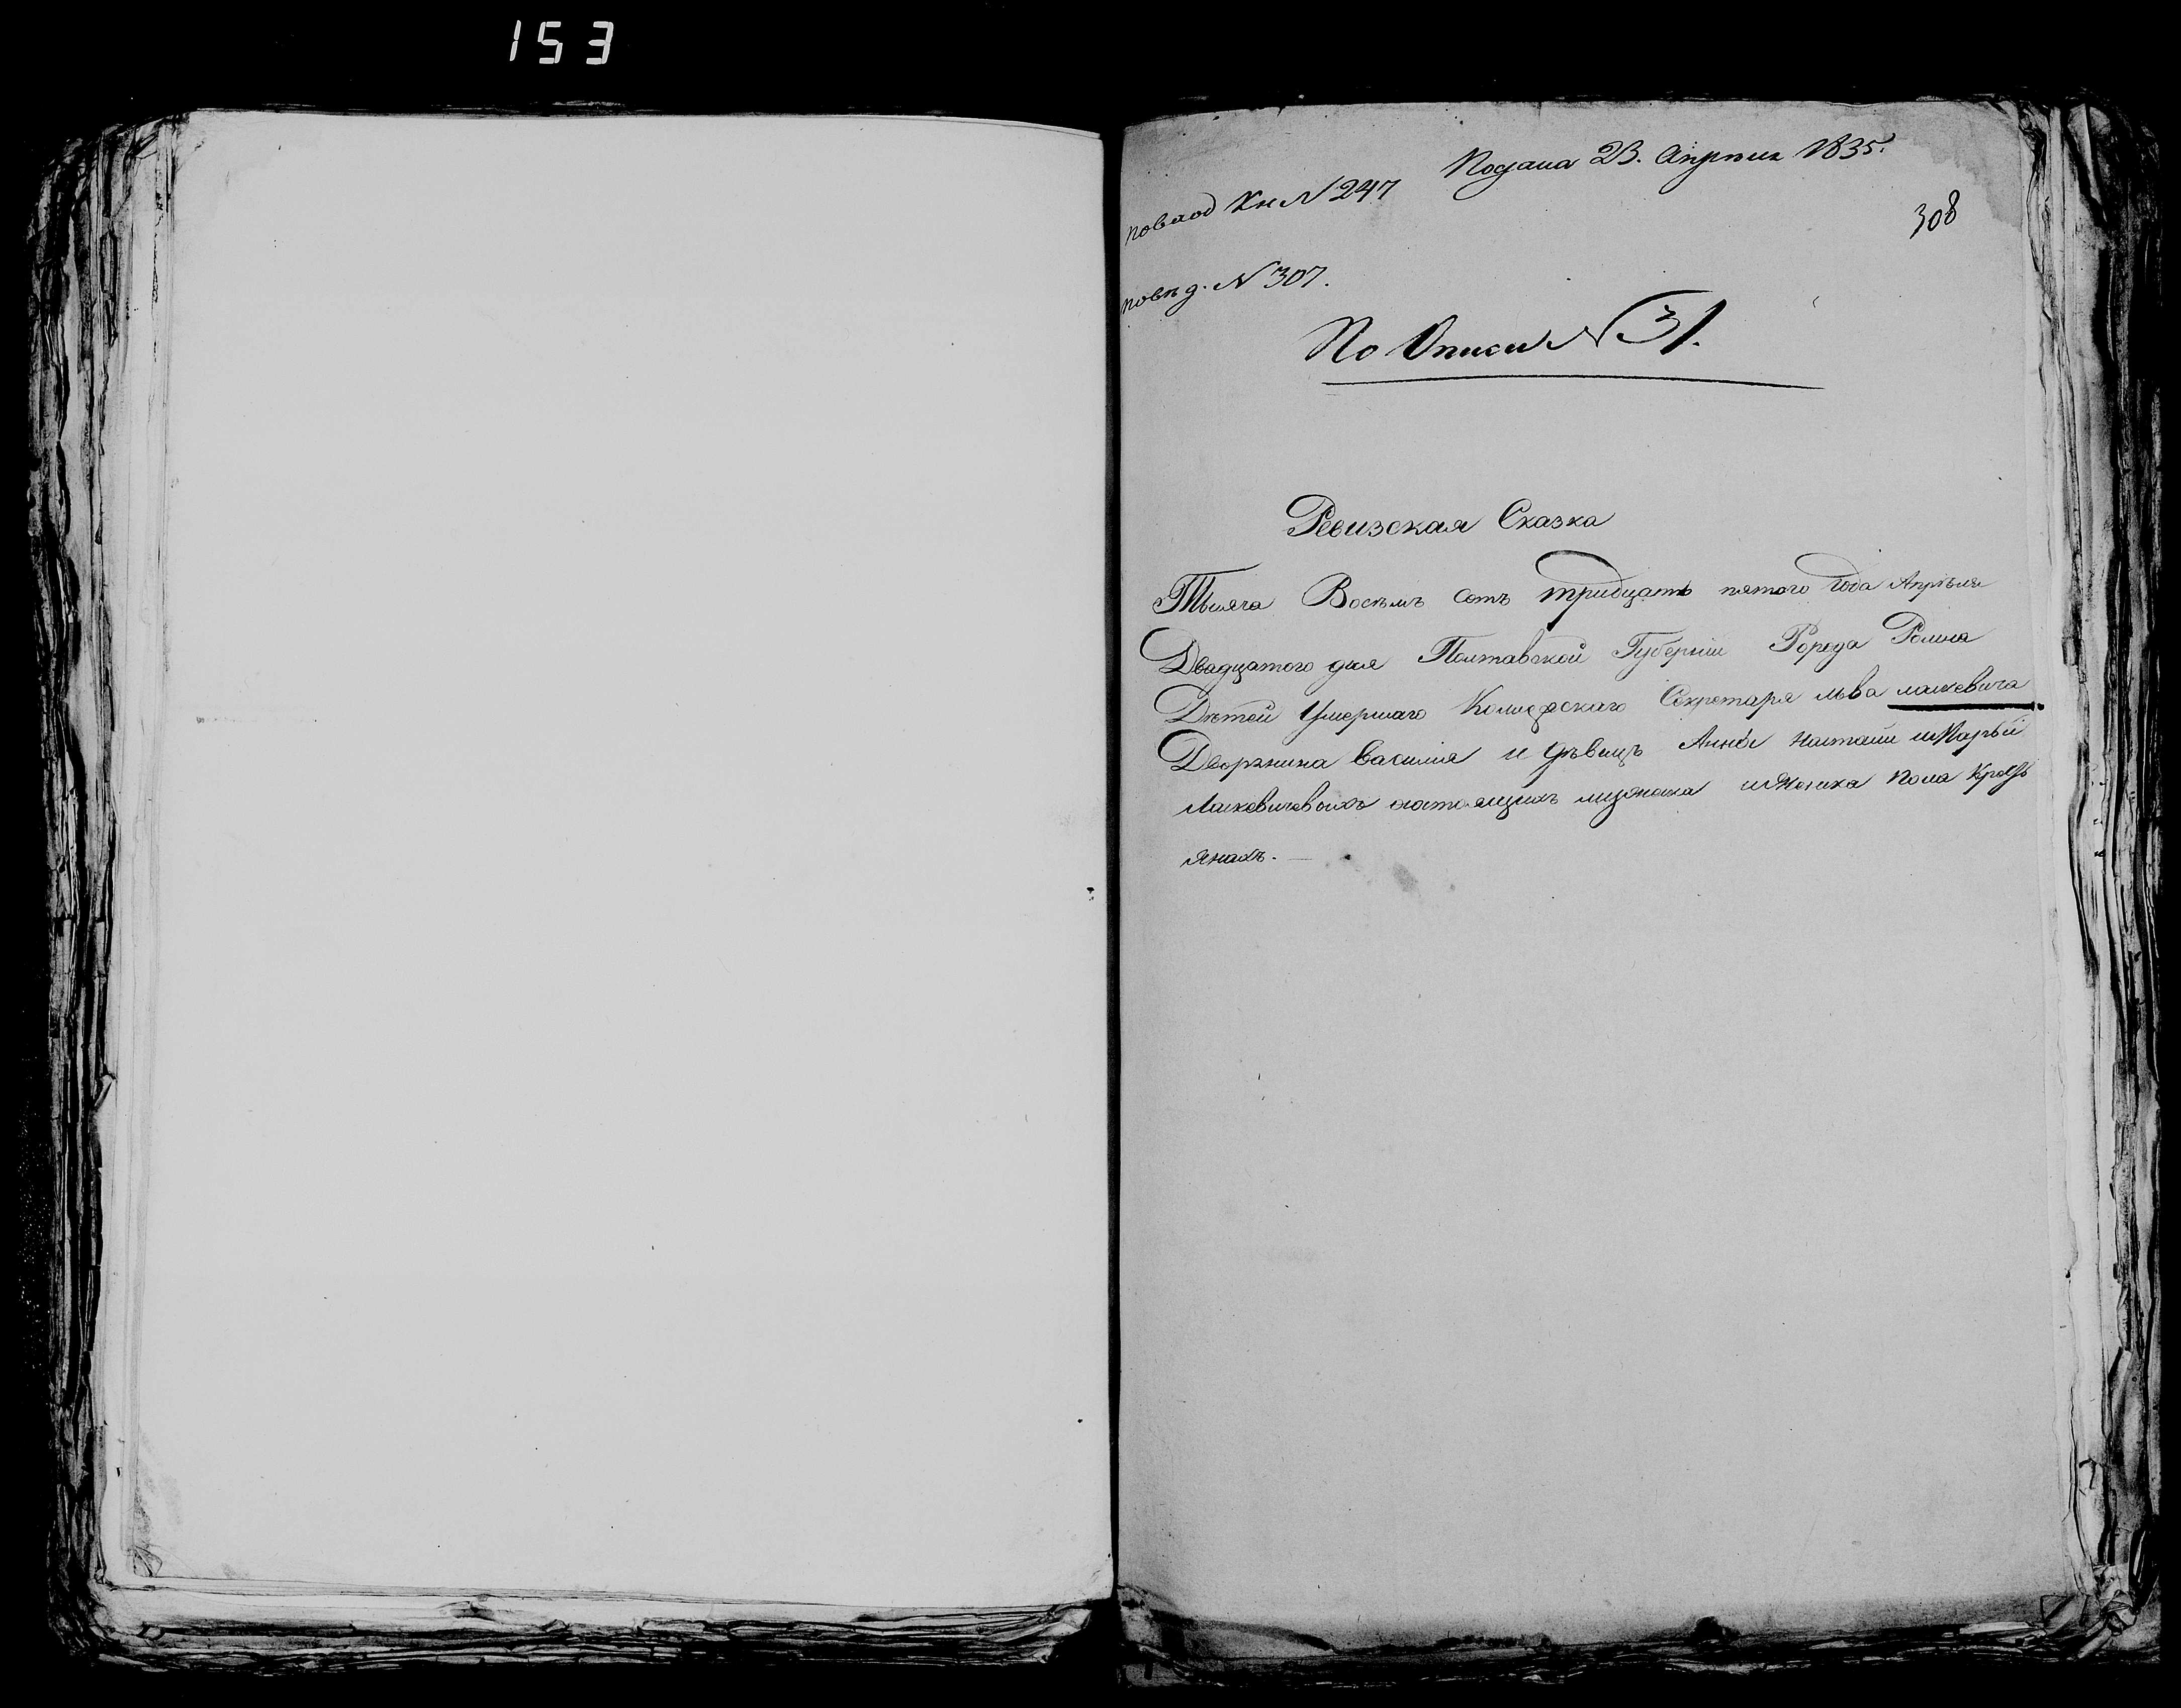 153
Подана 23. Апреля 1835.
повход Кн N 247
308
N 307.
По Описи N 31.
Ревизская Сказка
Тысяча Восемъ сотъ тридцать пятого года Апреля
Двадцатого дня Полтавской Губернии Города Ромна
Детей Умершаго Коллежскаго Секретаря Льва
Дворянина Василия и девицъ Анны Настасии и Марьи
состоящихъ мужеска и Женска пола Кресть
янахъ. —